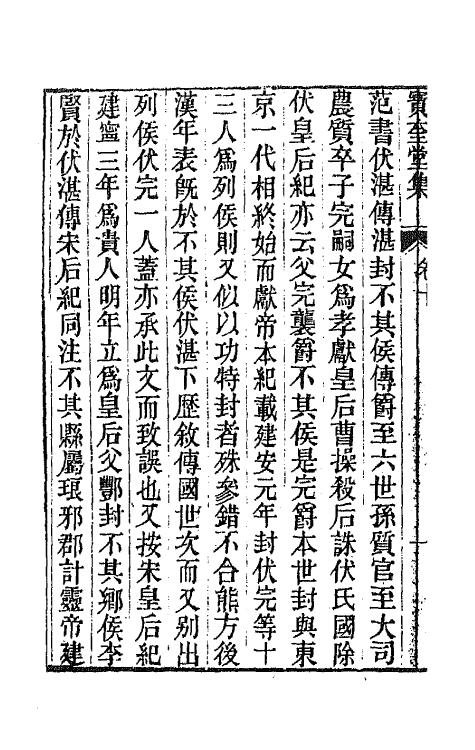 寶奎堂集
卷十
范書伏湛傳湛封不其侯傳爵至六世孫質官至大司
農質卒子完嗣女為孝獻皇后曹操殺后誅伏氏國除
伏皇后紀亦云父完襲爵不其侯是完爵本世封與東
京一代相終始而獻帝本紀載建安元年封伏完等十
三人為列侯則又似以功特封者殊參錯不合熊方後
漢年表旣於不其侯伏湛下歷敘傳國世次而又別出
列侯伏完一人蓋亦承此文而致誤也又按宋皇后紀
建寧三年為貴人明年立為皇后父酆封不其鄉侯李
賢於伏湛傳宋后紀同注不其縣屬琅邪郡計靈帝建